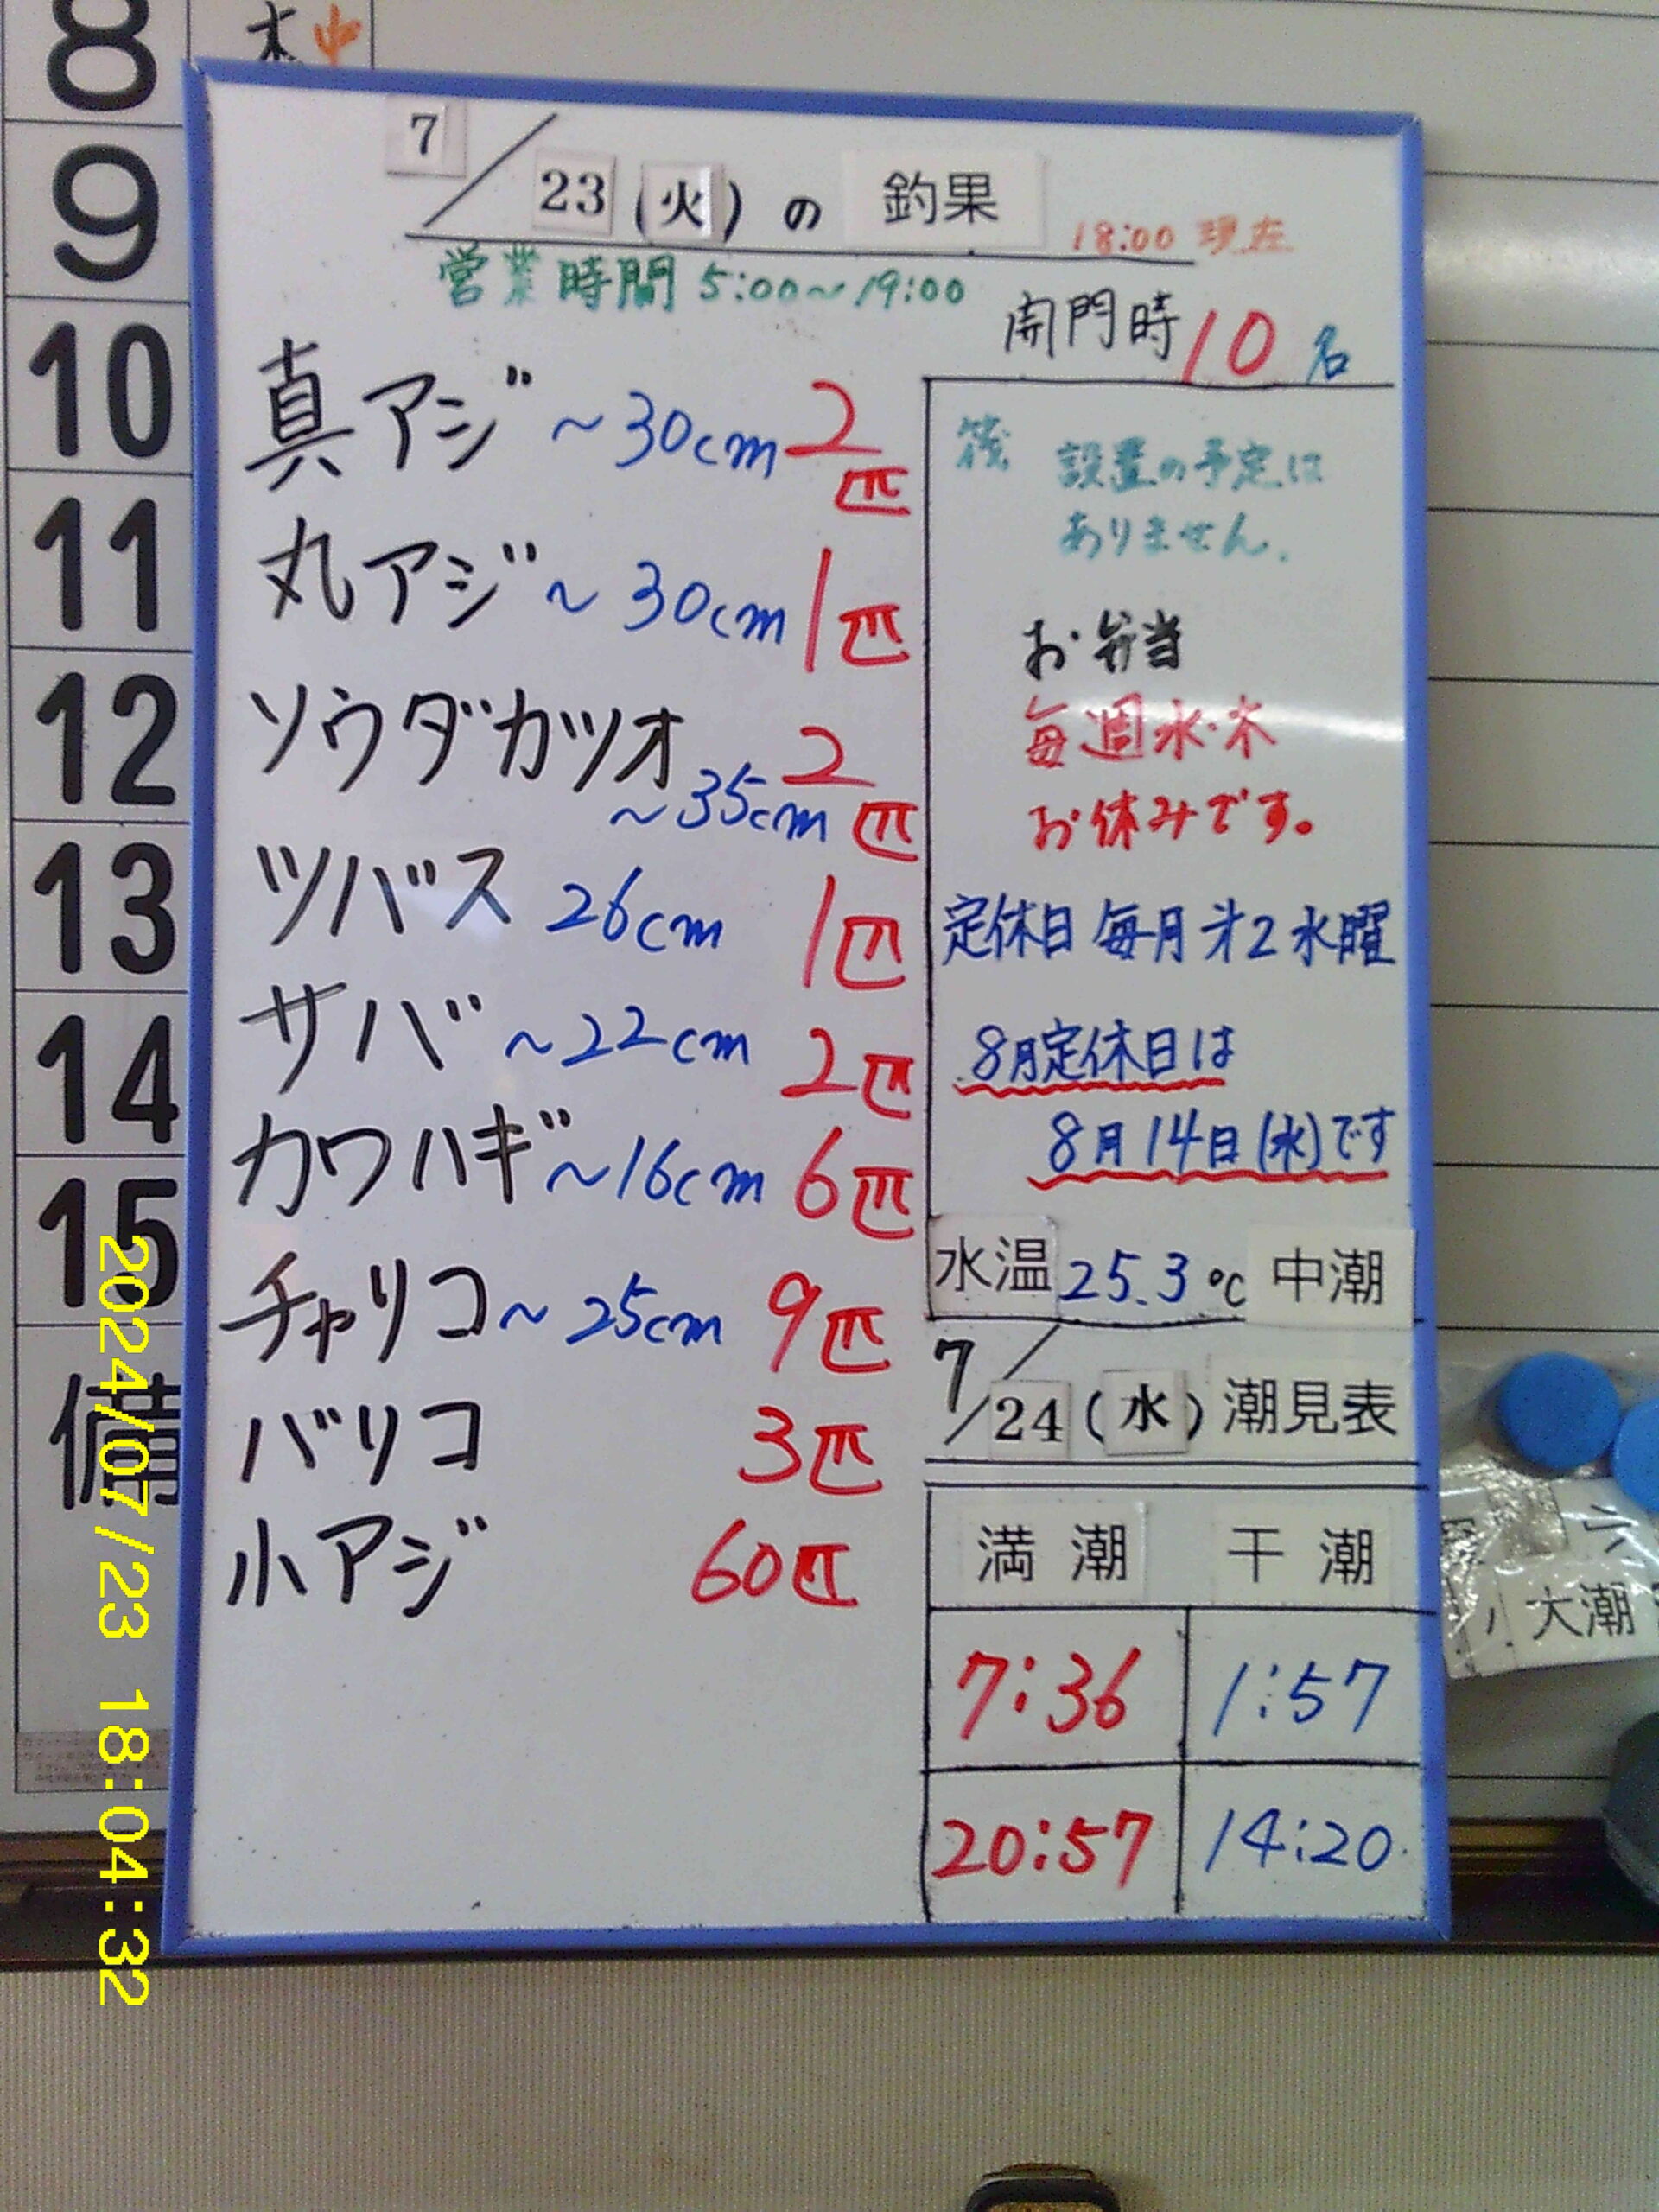 8 木 中
9
10
11
12
13
14
15
備
7/23(火)の 釣果
18:00 現在
営業時間 5:00~19:00
開門時 10名
真アジ ~30cm 2匹
丸アジ ~30cm 1匹
ソウダカツオ ~35cm 2匹
ツバス 26cm 1匹
サバ ~22cm 2匹
カワハギ ~16cm 6匹
チャリコ ~25cm 9匹
バリコ 3匹
小アジ 60匹
筏 設置の予定は
ありません.
お弁当
毎週水・木
お休みです。
定休日 毎月 才2 水曜
8月定休日は
8月14日(水)です
水温 25.3℃ 中潮
7/24(水)潮見表
満潮 干潮
7:36 1:57
20:57 14:20
大潮
2024/07/23 18:04:32